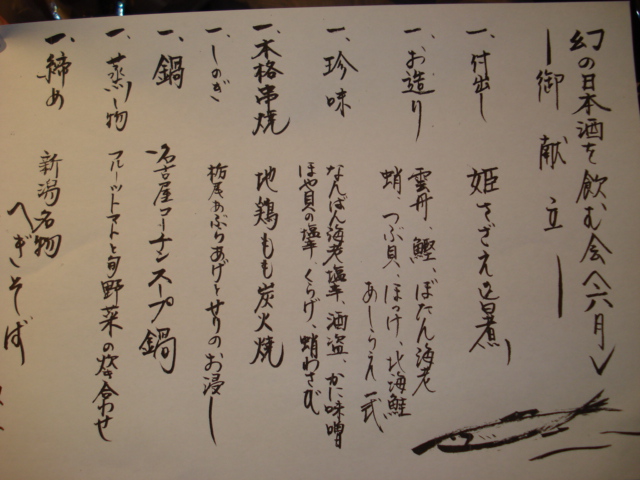 幻の日本酒を飲む会〈六月〉
ー御献立ー
一、付出し 姫さざえ旨煮
一、お造り 雲丹、鰹、ぼたん海老
蛸、つぶ貝、ほっけ、北海鮭
あしらえ一式
一、珍味 なんばん海老塩辛、酒盗、かに味噌
ほや貝の塩辛、くらげ、蛸わさび
一、本格串焼 地鶏もも炭火焼
一、しのぎ 栃尾あぶらあげとせりのお浸し
一、鍋 名古屋コーチンスープ鍋
一、蒸し物 フルーツトマトと旬野菜の炊合わせ
一、締め 新潟名物
へぎそば